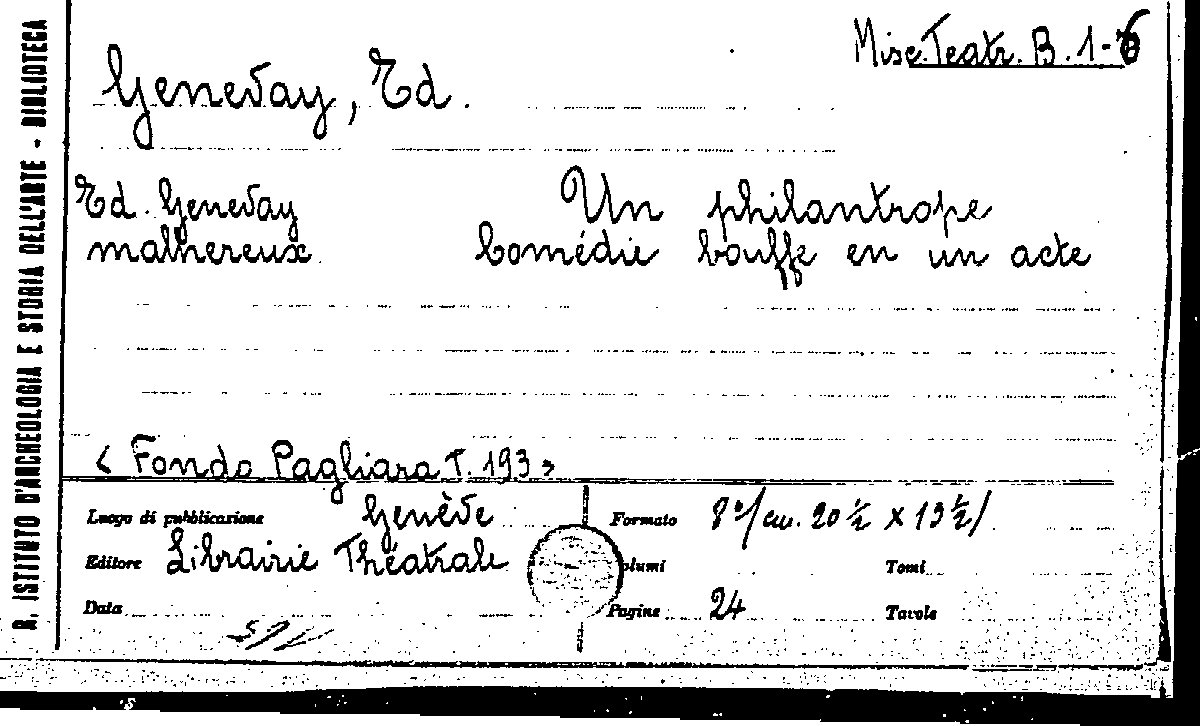 R. ISTITUTO D'ARCHEOLOGIA E STORIA DELL'ARTE - BIBLIOTECA
Misc. Teatr. B. 1-6
Genevay, Ed.
Ed. Genevay Un philantrope
malhereux Comédie bouffe en un acte
< Fondo Pagliara T. 193 >
Luogo di pubblicazione Genève
Formato 8°/cm. 20 ½ x 13 ½/
Editore Librairie Théatrale
olumi Tomi
Data
Pagine 24 Tavole